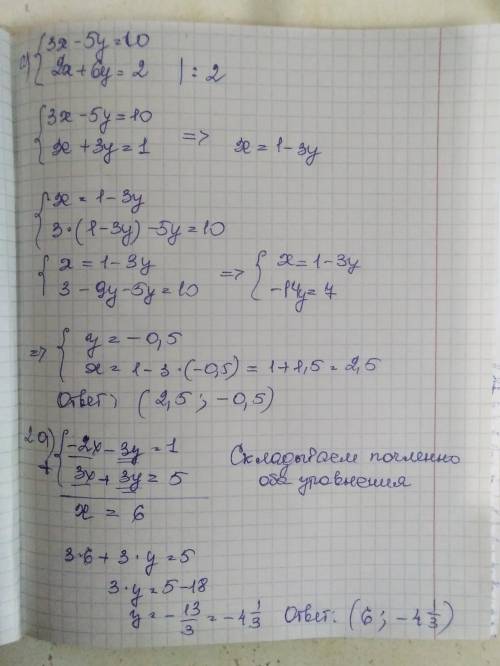 с) { 3x - 5y = 10
2x + 6y = 2 | : 2
{ 3x - 5y = 10
x + 3y = 1 => x = 1 - 3y
{ x = 1 - 3y
3·(1 - 3y) - 5y = 10
{ x = 1 - 3y => { x = 1 - 3y
3 - 9y - 5y = 10 -14y = 7
=> { y = -0,5
x = 1 - 3·(-0,5) = 1 + 1,5 = 2,5
Ответ: (2,5 ; -0,5)
2а) { -2x - 3y = 1 Складываем почленно
+ 3x + 3y = 5 оба уравнения
x = 6
3·6 + 3·y = 5
3·y = 5 - 18
y = -13/3 = -4 1/3 Ответ: (6 ; -4 1/3)